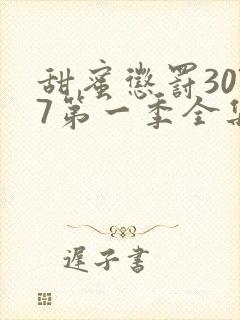 甜蜜懲罰30
7第一季全集
遲子書